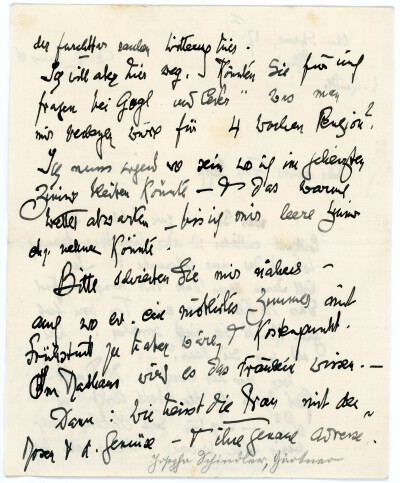 der furchtbar rauhen Witterung hier.
Ich will aber hier weg. Könnten Sie für mich
fragen bei Gogl und "Leder" was man
mir verlangen würde für 4 Wochen Pension?
Ich muss irgend wo sein wo ich im geheizten
Zimmer bleiben könnte — & das warme
Wetter abwarten — bis ich mir leere Zimmer
nehmen könnte
Bitte schreiben Sie mir näheres —
auch wo ev. ein möbliertes Zimmer mit
Frühstück zu haben wäre, & Kostenpunkt.
Im Rathaus wird es das Fräulein wissen. —
Dann: wie heisst die Frau mit den
Rosen & d. Gemüse — & ihre genaue Adresse.
Josepha Schindler, Gärtner